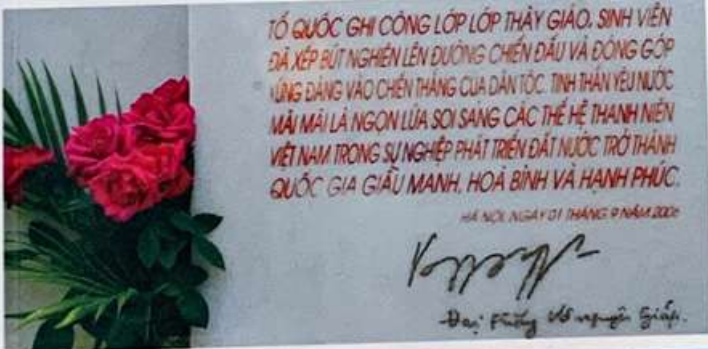 TỔ QUỐC GHI CÔNG LỚP LỚP THẦY GIÁO, SINH VIÊN
ĐÃ XẾP BÚT NGHIÊN LÊN ĐƯỜNG CHIẾN ĐẤU VÀ ĐÓNG GÓP
XỨNG ĐÁNG VÀO CHIẾN THẮNG CỦA DÂN TỘC. TINH THẦN YÊU NƯỚC
MÃI MÃI LÀ NGỌN LỬA SOI SÁNG CÁC THẾ HỆ THANH NIÊN
VIỆT NAM TRONG SỰ NGHIỆP PHÁT TRIỂN ĐẤT NƯỚC TRỞ THÀNH
QUỐC GIA GIẦU MẠNH, HOÀ BÌNH VÀ HẠNH PHÚC.
HÀ NỘI, NGÀY 01 THÁNG 9 NĂM
Đại tướng Võ nguyên Giáp.